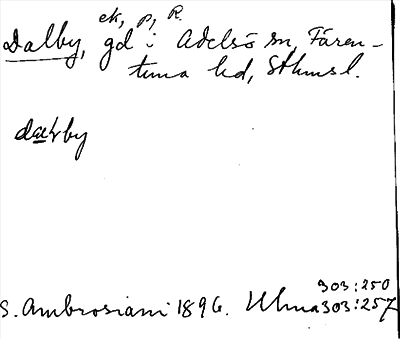 ek, p, R.
Dalby, gd i Adelsö sn, Fären-
tuna hd, Sthmsl.
dalby
303:250
S. Ambrosiani 1896. Ulma 303:257